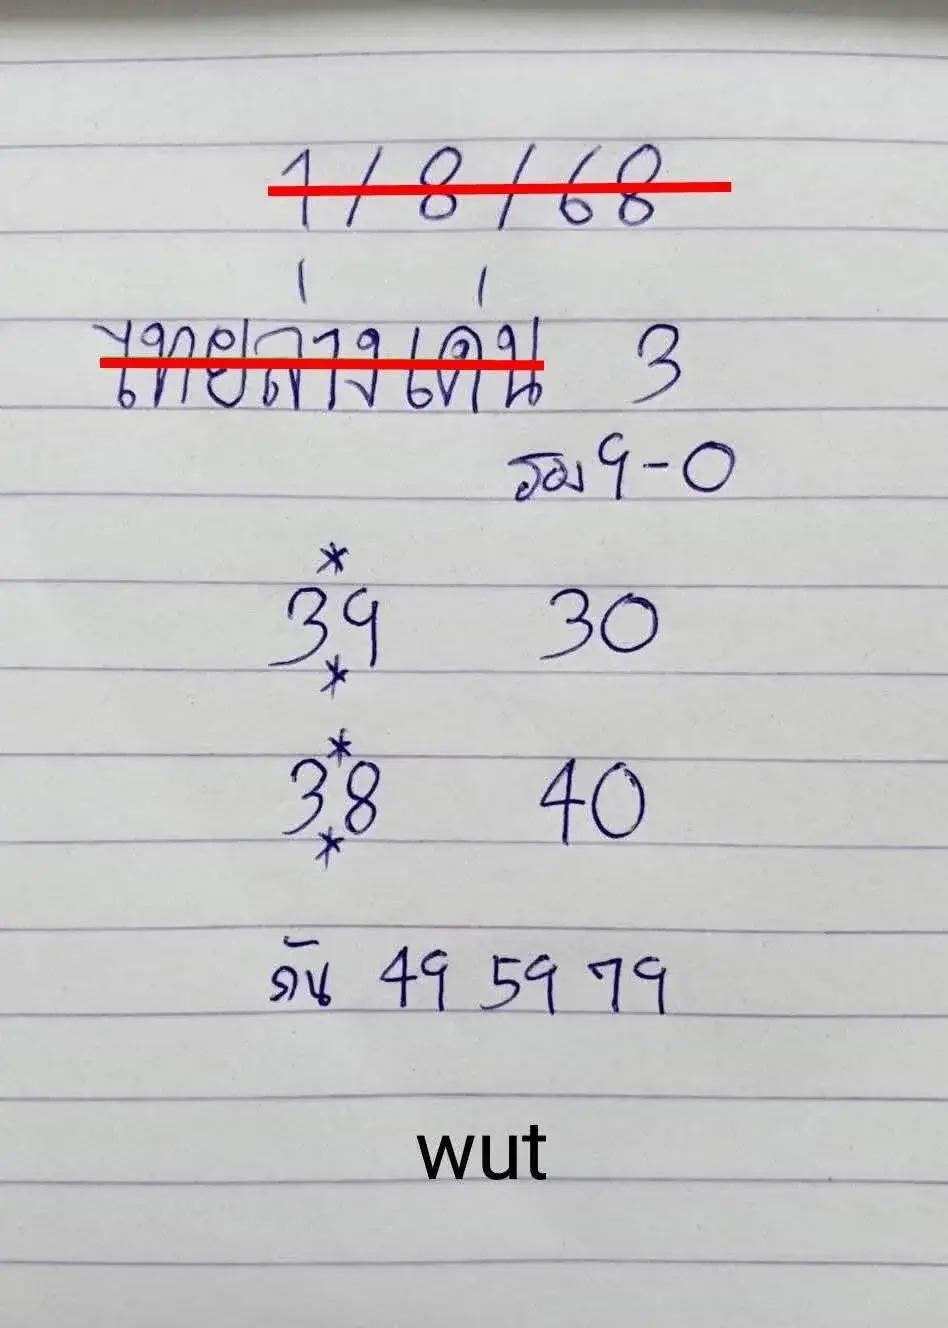 1/8/68
ไทยล่างเด่น 3
รอง 9-0
39 30
38 40
กัน 49 59 79
wut